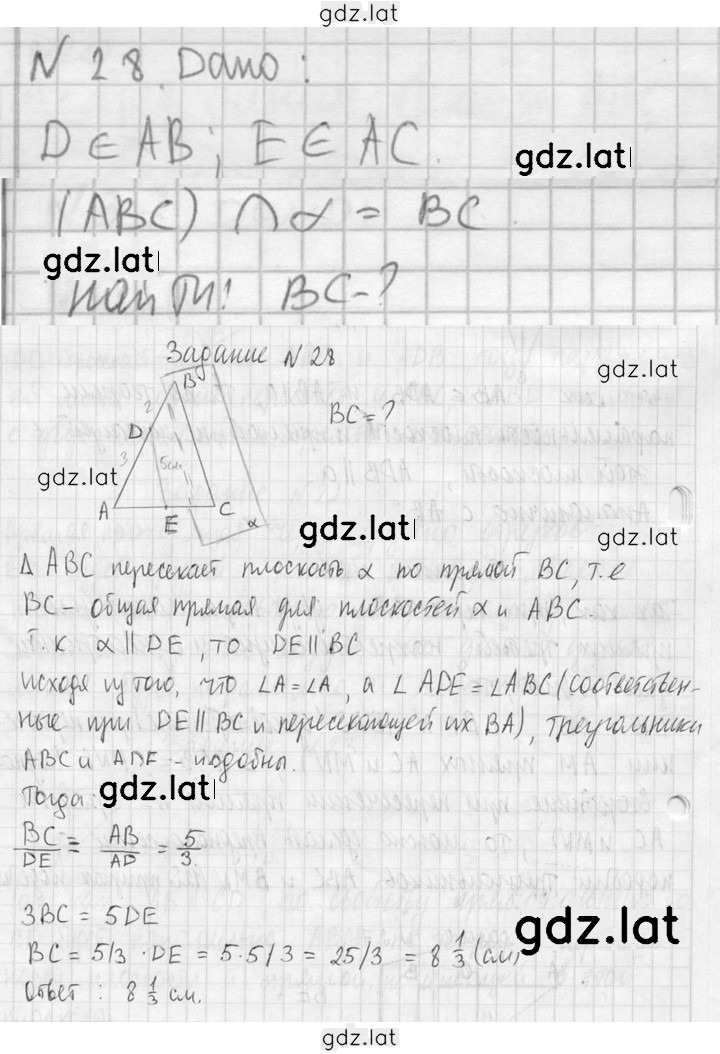 gdz.lat
N 28 Дано:
D ∈ AB; E ∈ AC.
gdz.lat
(ABC) ∩ α = BC
gdz.lat
Найти: BC-?
Задание N 28
gdz.lat
B
2
BC = ?
D
3
5см
gdz.lat
A
E
C
α
gdz.lat
Δ ABC пересекает плоскость α по прямой BC, т.е
BC - общая прямая для плоскостей α и ABC
Т.к α || DE, то DE || BC
исходя из того, что ∠A = ∠A, а ∠ ADE = ∠ABC (соответствен-
ные при DE || BC и пересекающей их BA), треугольники
ABC и ADE - подобны.
Тогда
gdz.lat
BC/DE = AB/AD = 5/3
3BC = 5DE
gdz.lat
BC = 5/3 · DE = 5·5/3 = 25/3 = 8 1/3 (см)
Ответ: 8 1/3 см.
gdz.lat